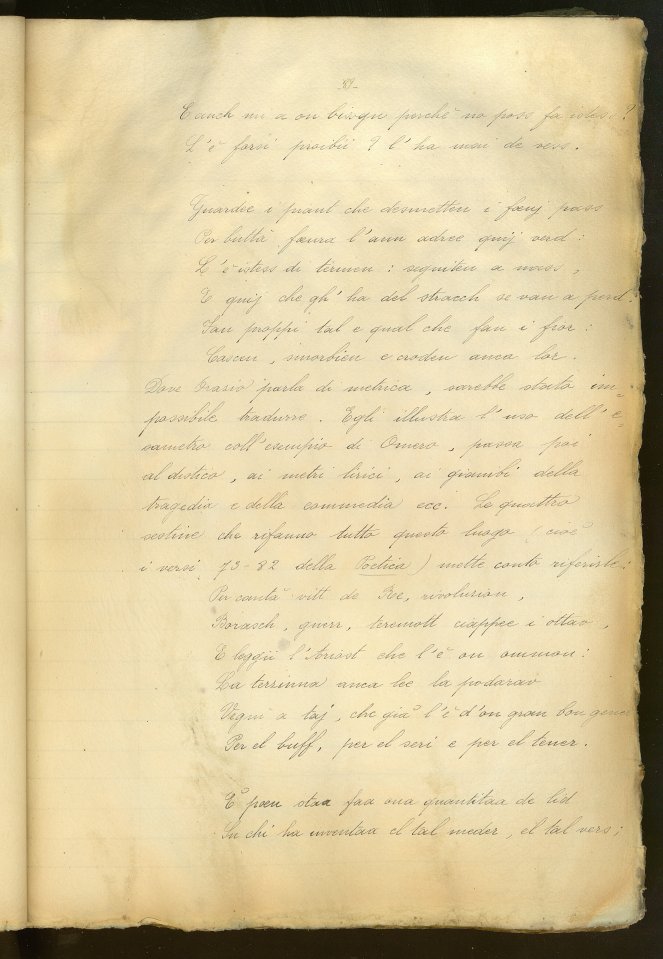 E anch mi a on bisogn perchè no poss fa istess?
L'è forsi proibii? l'ha mai de vess.
Guardee i piant che desmetten i fœuj pass
Per buttà fœura l'ann adree quij verd:
L'è istess di termen: seguiten a nass,
E quij che gh'ha del stracch se van a perd.
San proppi tal e qual che fan i fior:
Cascen, smorbien e croden anca lor.
Dove Orazio parla di metrica, sarebbe stato im=
possibile tradurre. Egli illustra l'uso dell'e=
sametro coll'esempio di Omero, passa poi
al distico, ai metri lirici, ai giambi della
tragedia e della commedia ecc. Le quattro
sestine che rifanno tutto questo luogo (cioè
i versi 73-82 della Poetica) mette conto riferirle:
Per cantà vitt de Re, rivolusion,
Borasch, guerr, teremott ciappee i ottav,
E leggii l'Ariost che l'è on ommon:
La terzinna anca lee la podarav
Vegnì a taj, che già l'è d'on gran bon gener
Per el buff, per el seri e per el tener.
E pœu staa faa ona quantitaa de lid
Su chi ha inventaa el tal meder, el tal vers;